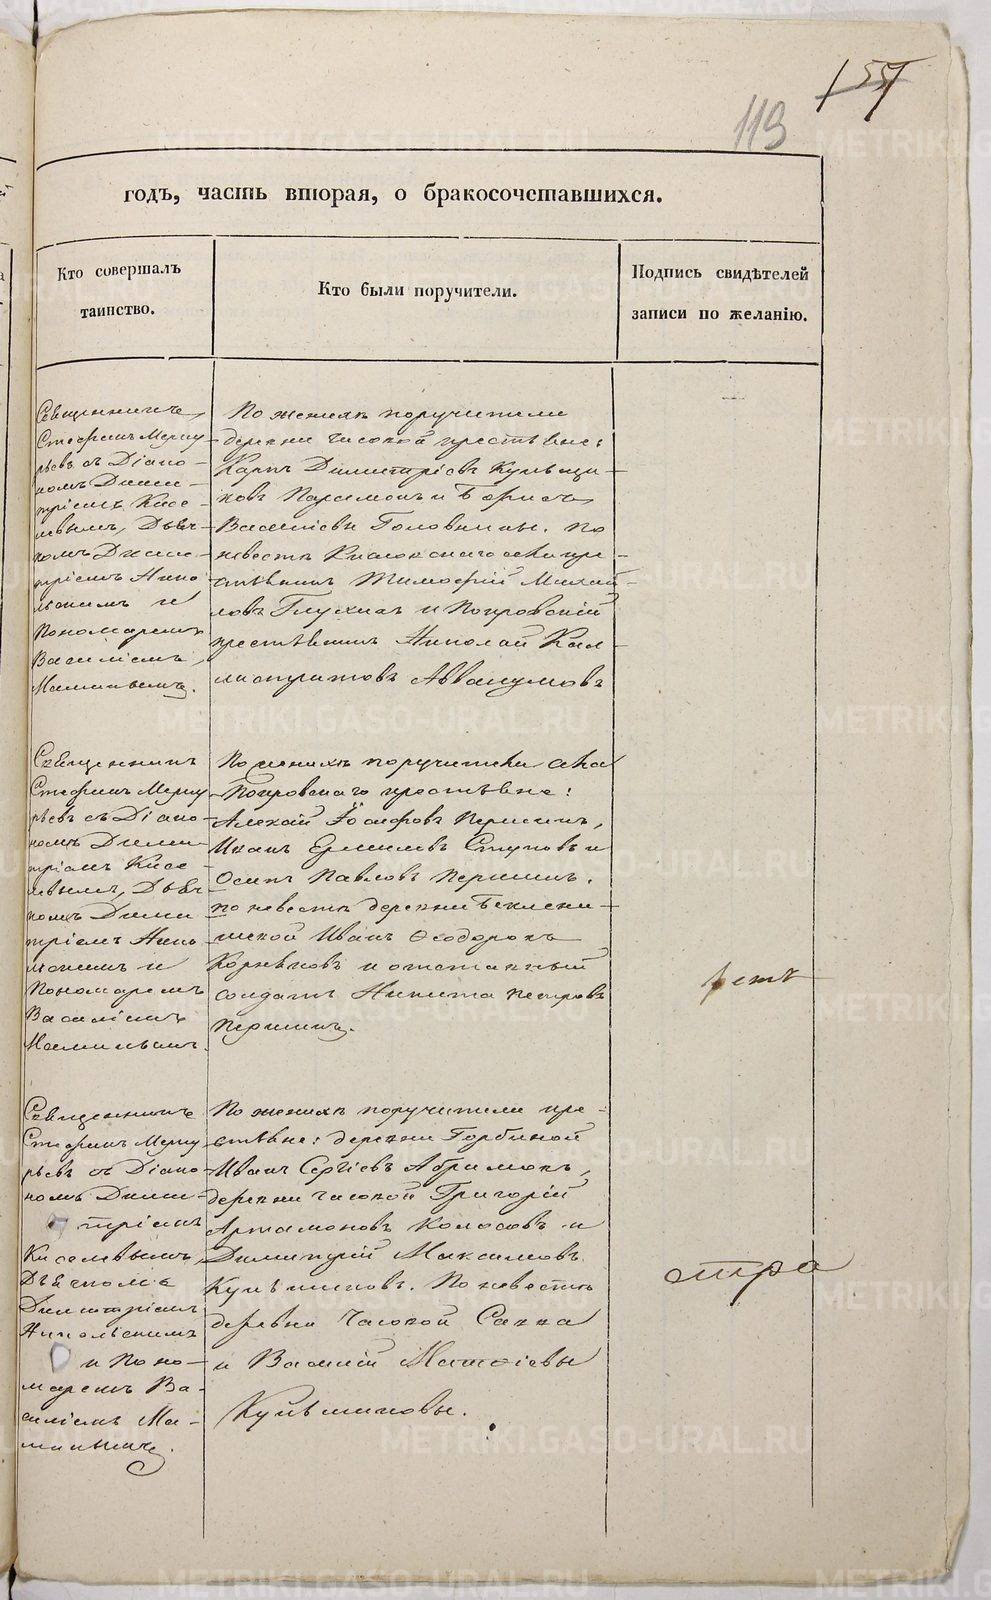 119
годъ, часть вторая, о бракосочетавшихся.
Кто совершалъ
таинство.
Кто были поручители.
Подпись свидѣтелей
записи по желанію.
Священникъ
Стефанъ Мерку
рьевъ съ Діако-
номъ Дими-
тріемъ Кисе-
левымъ, Дьяч-
комъ Дими-
тріемъ Нико
льскимъ и
Пономаремъ
Василіемъ
Маминымъ.
По женихѣ поручители
деревни Часовой крестьяне:
Карпъ Димитріевъ
Парамонъ и Борисъ
Василіевы Головины. По
невестѣ села кре-
стьянинъ Тимофей Михай-
ловъ Глухихъ и Покровскій
крестьянинъ Николай Кал-
листратовъ Аввакумовъ
Священникъ
Стефанъ Мерку
рьевъ съ Діако-
номъ Дими-
тріемъ Кисе
левымъ, Дьяч
комъ Дими
тріемъ Нико
льскимъ и
Пономаремъ
Василіемъ
Маминымъ.
По женихѣ поручители села
Покровскаго крестьяне:
Алексѣй Іосифовъ Першинъ,
Иванъ Ступовъ и
Осипъ Павловъ Першинъ.
по невестѣ деревни Беклени-
щевой Иванъ Ѳеодоровъ
Коревновъ и отставный
солдатъ Никита Петровъ
Першинъ.
Священникъ
Стефанъ Мерку
рьевъ съ Діако
номъ Дими-
тріемъ
Киселевымъ,
Дьячкомъ
Димитріемъ
Никольскимъ
и Поно-
маремъ Ва-
силіемъ Ма-
минымъ.
По женихѣ поручители кре-
стьяне: деревни Горбуновой
Иванъ Сергіевъ Абрамовъ,
деревни Часовой Григорій
Артамоновъ Колосовъ и
Димитрій Максимовъ
По невестѣ
деревни Часовой Савва
и Василій Матѳіевы